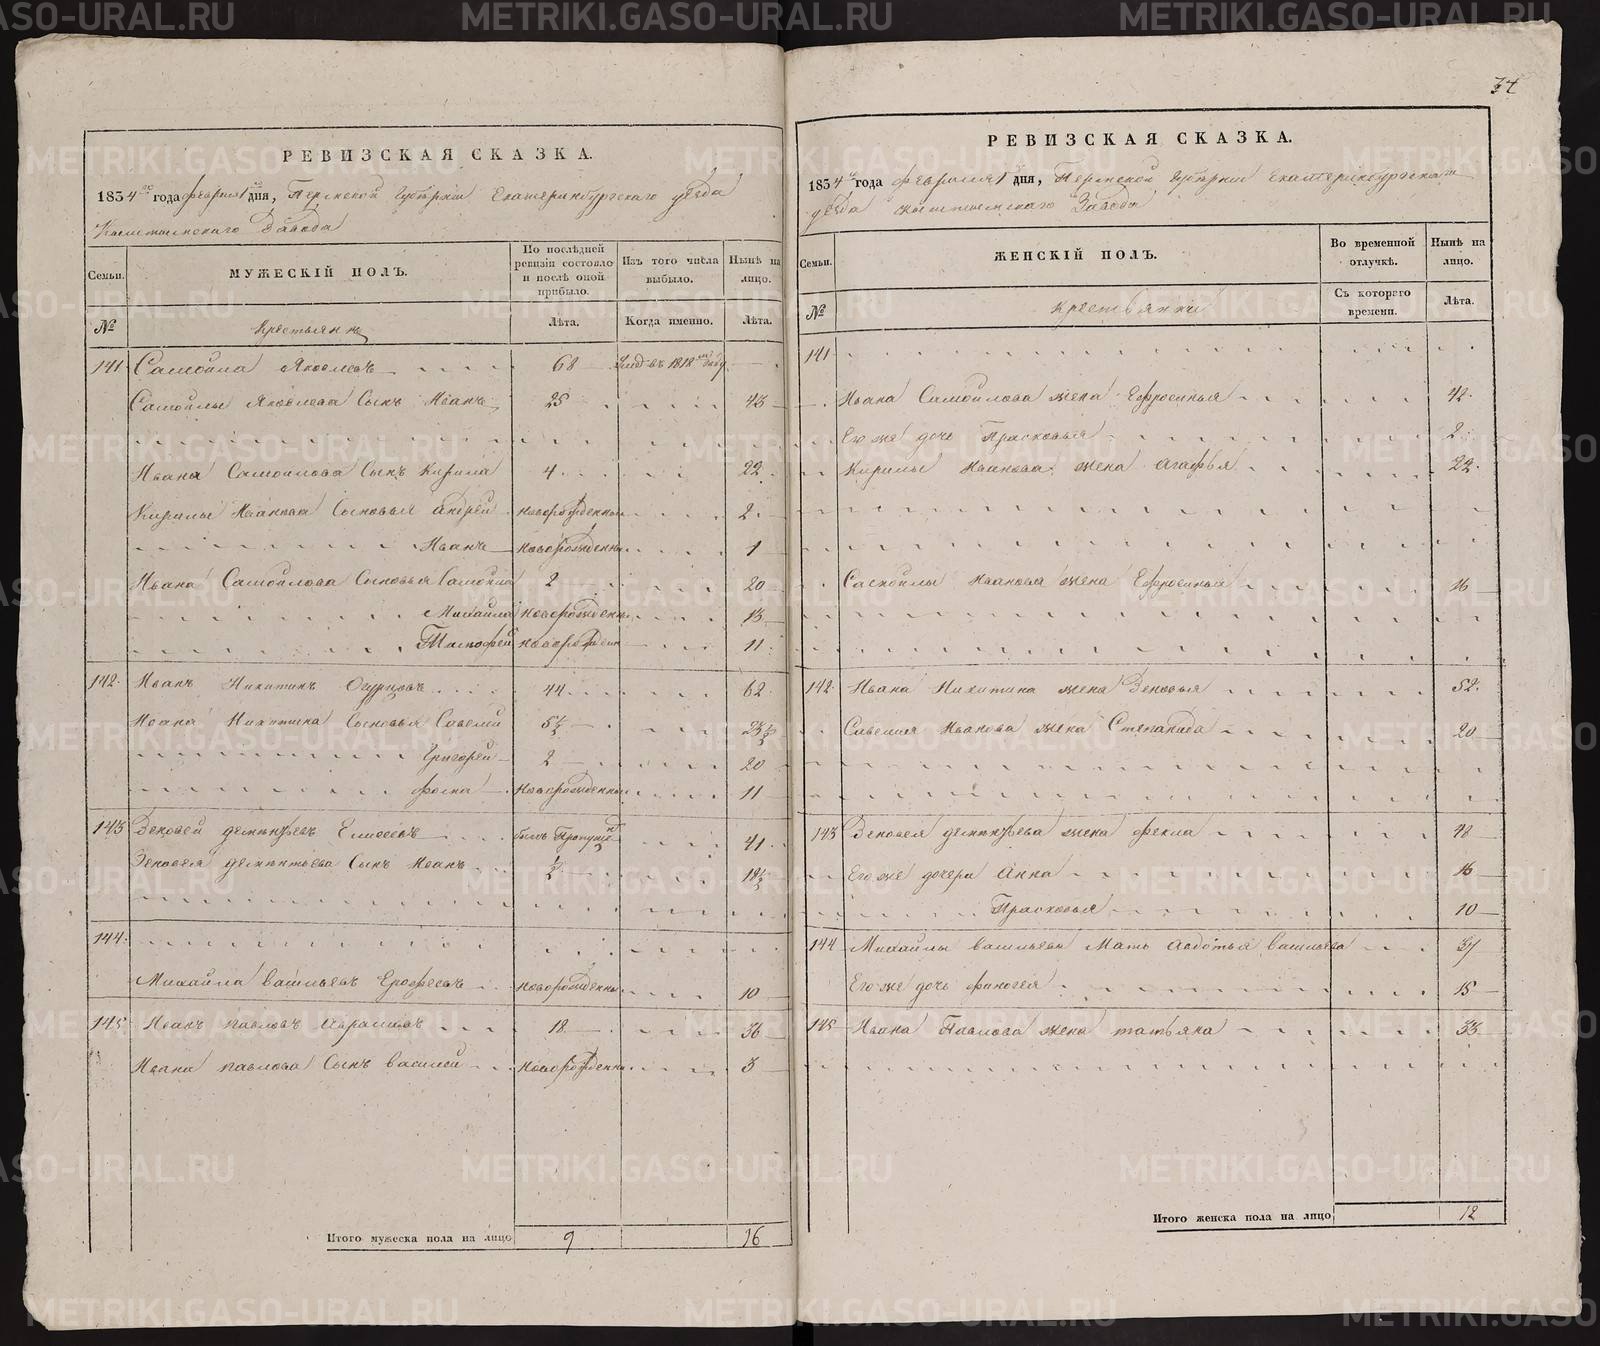 34
РЕВИЗСКАЯ СКАЗКА.
1834го года февраля 1го дня, Пермской Губернии Екатеринбургского уезда
Кыштымского Завода
Семьи.
МУЖЕСКІЙ ПОЛЪ.
По послѣдней ревизіи состояло и послѣ оной прибыло.
Изъ того числа выбыло.
Нынѣ на лицо.
№
Крестьяне
Лѣта.
Когда именно.
Лѣта.
141 Самойла Яковлевъ 68 Умд въ 1818мъ году
Самойлы Яковлева Сынъ Иванъ 25 43
Ивана Самойлова Сынъ Кирила 4 22
Кирилы Иванова Сыновья андрей новорожденны 2
Иванъ новорожденны 1
Ивана Самойлова Сыновья Самойла 2 20
Михайла новорожденны 13
Тимофей новорожден 11
142 Иванъ Никитинъ Огурцовъ 44 62
Ивана Никитина Сыновья Савелий 5½ 23½
Григорей 2 20
фома новорожденны 11
143 Зеновей дементьевъ Елисеевъ былъ Пропущенъ 41
Зеновея дементьева Сынъ Иванъ ½ 18½
144
Михайла васильевъ Ерофеевъ новорожденны 10
145 Иванъ павловъ Абрамовъ 18 36
Ивана павлова Сынъ василей новорожденны 3
Итого мужеска пола на лицо 9 16
РЕВИЗСКАЯ СКАЗКА.
1834го года февраля 1 дня, Пермской Губернии Екатеринбургскаго
уезда Кыштымскаго Завода
Семьи.
ЖЕНСКІЙ ПОЛЪ.
Во временной отлучкѣ.
Нынѣ на лицо.
№
Крестьянки
Съ котораго времени.
Лѣта.
141
Ивана Самойлова жена Ефросинья 42
Его же дочь Прасковья 2
Кирилы Иванова жена агафья 22
Самойлы Иванова жена Ефросинья 16
142 Ивана Никитина жена Зеновья 52
Савелия Иванова жена Степанида 20
143 Зеновея дементьева жена фекла 42
Его же дочери Анна 16
Прасковья 10
144 Михайлы васильева Мать авдотья васильева 37
Его же дочь 15
145 Ивана Павлова жена татьяна 33
Итого женска пола на лицо 12
METRIKI.GASO-URAL.RU